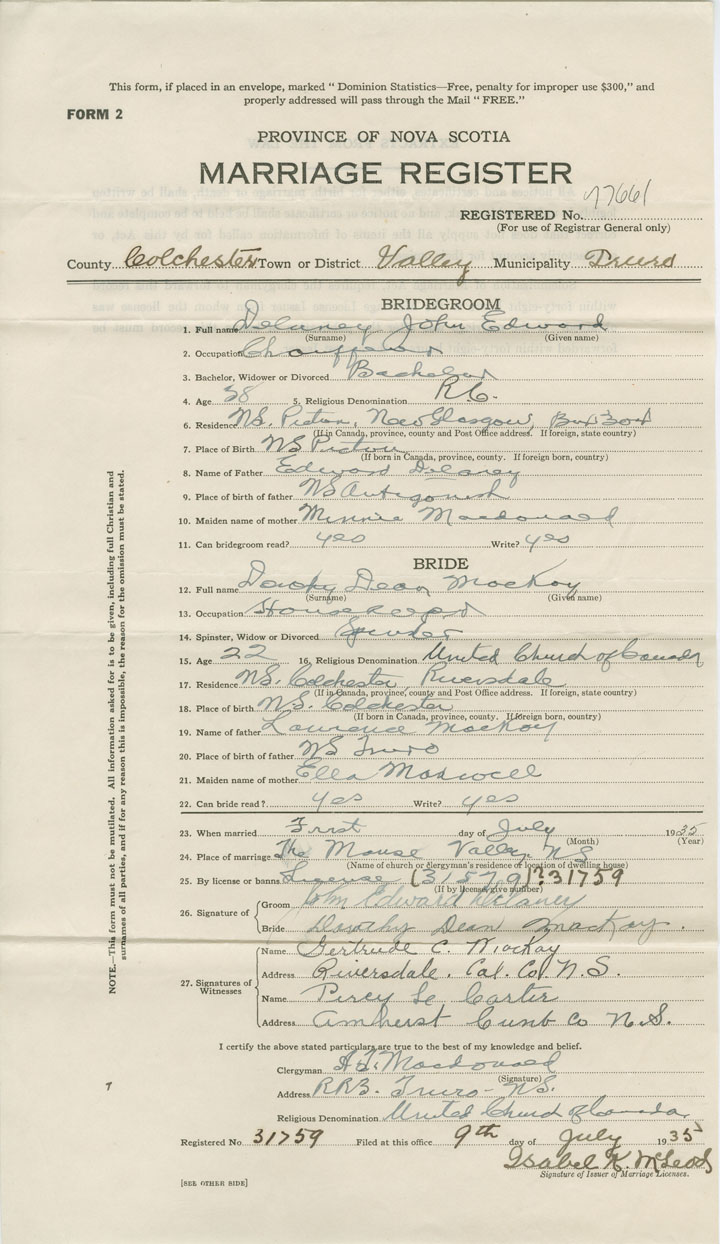 This form, if placed in an envelope, marked " Dominion Statistics—Free, penalty for improper use $300," and
properly addressed will pass through the Mail " FREE."
FORM 2
PROVINCE OF NOVA SCOTIA
MARRIAGE REGISTER
REGISTERED No. 77661
(For use of Registrar General only)
County Colchester Town or District Valley Municipality Truro
BRIDEGROOM
1. Full name Delaney John Edward
(Surname) (Given name)
2. Occupation Chauffeur
3. Bachelor, Widower or Divorced Bachelor
4. Age 38 5. Religious Denomination R.C.
6. Residence NS. Pictou, New Glasgow, Box 304
(If in Canada, province, county and Post Office address. If foreign, state country)
7. Place of Birth NS Pictou
(If born in Canada, province, county. If foreign born, country)
8. Name of Father Edward Delaney
9. Place of birth of father NS Antigonish
10. Maiden name of mother Minnie Macdonald
11. Can bridegroom read? yes Write? yes
BRIDE
12. Full name Dean MacKay
(Surname) (Given name)
13. Occupation Housekeeper
14. Spinster, Widow or Divorced Spinster
15. Age 22 16. Religious Denomination United Church of Canada
17. Residence NS. Colchester, Riversdale
(If in Canada, province, county and Post Office address. If foreign, state country)
18. Place of birth NS. Colchester
(If born in Canada, province, county. If foreign born, country)
19. Name of father Laurence MacKay
20. Place of birth of father NS Truro
21. Maiden name of mother Ella Maxwell
22. Can bride read? yes Write? yes
23. When married First day of July 1935
(Month) (Year)
24. Place of marriage The Manse Valley, NS
(Name of church or clergyman's residence or location of dwelling house)
25. By license or banns License (31579)? 31759
(If by license give number)
26. Signature of Groom John Edward Delaney
Bride Dorothy Dean MacKay.
27. Signatures of Witnesses
Name Gertrude C. MacKay
Address Riversdale, Col. Co. N.S.
Name Percy Le Carter
Address Amherst Cumb Co N.S.
I certify the above stated particulars are true to the best of my knowledge and belief.
Clergyman Macdonald
(Signature)
Address Truro - NS.
Religious Denomination United Church of Canada
Registered No 31759 Filed at this office 9th day of July 1935
Isabel K. McLeod
Signature of Issuer of Marriage Licenses.
[SEE OTHER SIDE]
NOTE.—This form must not be mutilated. All information asked for is to be given, including full Christian and
surnames of all parties, and if for any reason this is impossible, the reason for the omission must be stated.